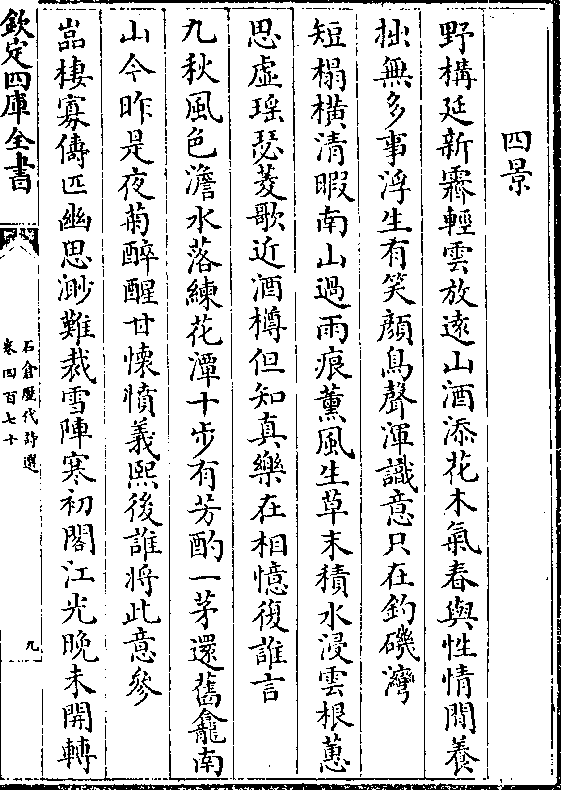 四景
野構延新霽輕雲放遠山酒添花木氣春與性情閒養
拙無多事浮生有笑顔鳥聲渾識意只在釣磯灣
短榻橫清暇南山過雨痕薰風生草末積水浸雲根蕙
思虛瑤瑟菱歌近酒樽但知真樂在相憶復誰言
九秋風色澹水落練花潭十步有芳酌一茅還舊龕南
山今昨是夜菊醉醒甘懐憤義熙後誰將此意參
嵓棲寡儔匹幽思渺難裁雪陣寒初閣江光晚未開轉
欽定四庫全書
石倉歷代詩選
卷四百七十
九